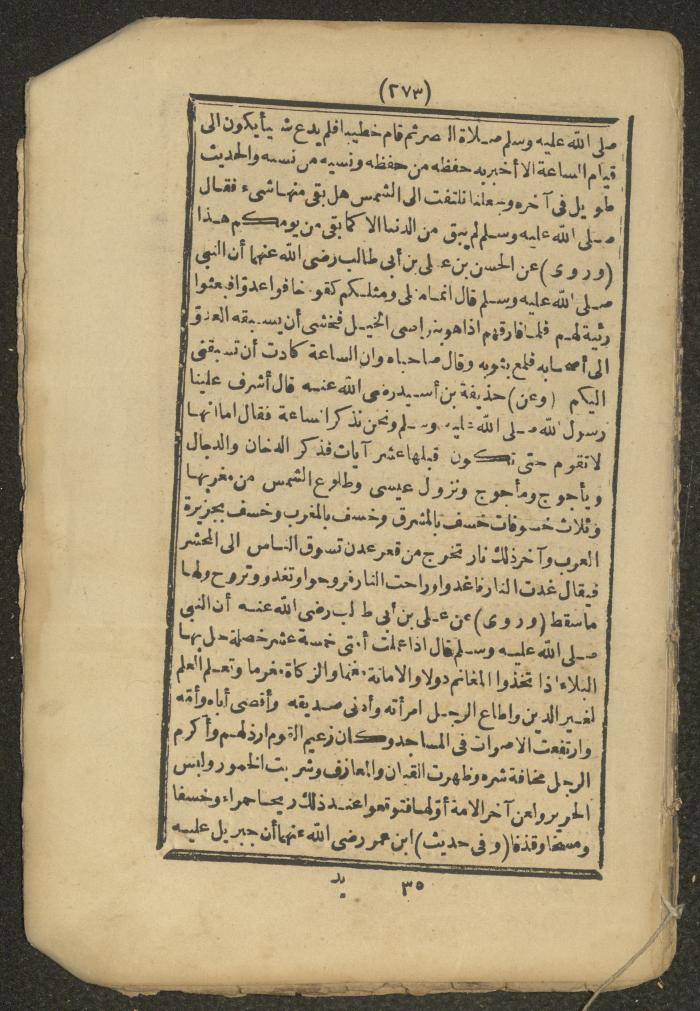 (٢٧٣)
صلى الله عليه وسلم صلاة العصر ثم قام خطيبا فلم يدع شيأ يكون الى
قيام الساعة الا أخبر به حفظه من حفظه ونسيه من نسيه والحديث
طويل فى آخره وجعلنا نلتفت الى الشمس هل بقى منها شىء فقال
صلى الله عليه وسلم لم يبق من الدنيا الا كما بقى من يومكم هذا
(وروى) عن الحسن بن على بن أبى طالب رضى الله عنهما أن النبى
صلى الله عليه وسلم قال انما مثلى ومثلكم كقوم خافوا عدوا فبعثوا
رئية لهم فلما فارقهم اذا هو بنواصى الخيل فخشى أن يسبقه العدو
الى أصحابه فلمع بثوبه وقال صاحباه وان الساعة كادت أن تسبقنى
اليكم (وعن) حذيفة بن أسيد رضى الله عنه قال أشرف علينا
رسول الله صلى الله عليه وسلم ونحن نذكر الساعة فقال اما انها
لا تقوم حتى تكون قبلها عشر آيات فذكر الدخان والدجال
ويأجوج ومأجوج ونزول عيسى وطلوع الشمس من مغربها
وثلاث خسوفات خسف بالمشرق وخسف بالمغرب وخسف بجزيرة
العرب وآخر ذلك نار تخرج من قعر عدن تسوق الناس الى المحشر
فيقال غدت النار فاغدوا وراحت النار فروحوا وتغدو وتروح ولها
ما سقط (وروى) عن على بن أبى طالب رضى الله عنه أن النبى
صلى الله عليه وسلم قال اذا عملت أمتى خمسة عشر خصلة حل بها
البلاء اذا تخذوا المغانم دولا والامانة مغنما والزكاة مغرما وتعلم العلم
لغير الدين واطاع الرجل امرأته وأدنى صديقه وأقصى أباه وأمه
وارتفعت الاصوات فى المساجد وكان زعيم القوم ارذلهم وأكرم
الرجل مخافة شره وظهرت القيان والمعازف وشربت الخمور ولبس
الحرير ولعن آخر الامة أولها فتوقعوا عند ذلك ريحا حمراء وخسفا
ومسخا وقذفا (وفى حديث) ابن عمر رضى الله عنهما أن جبريل عليه
٣٥ يد